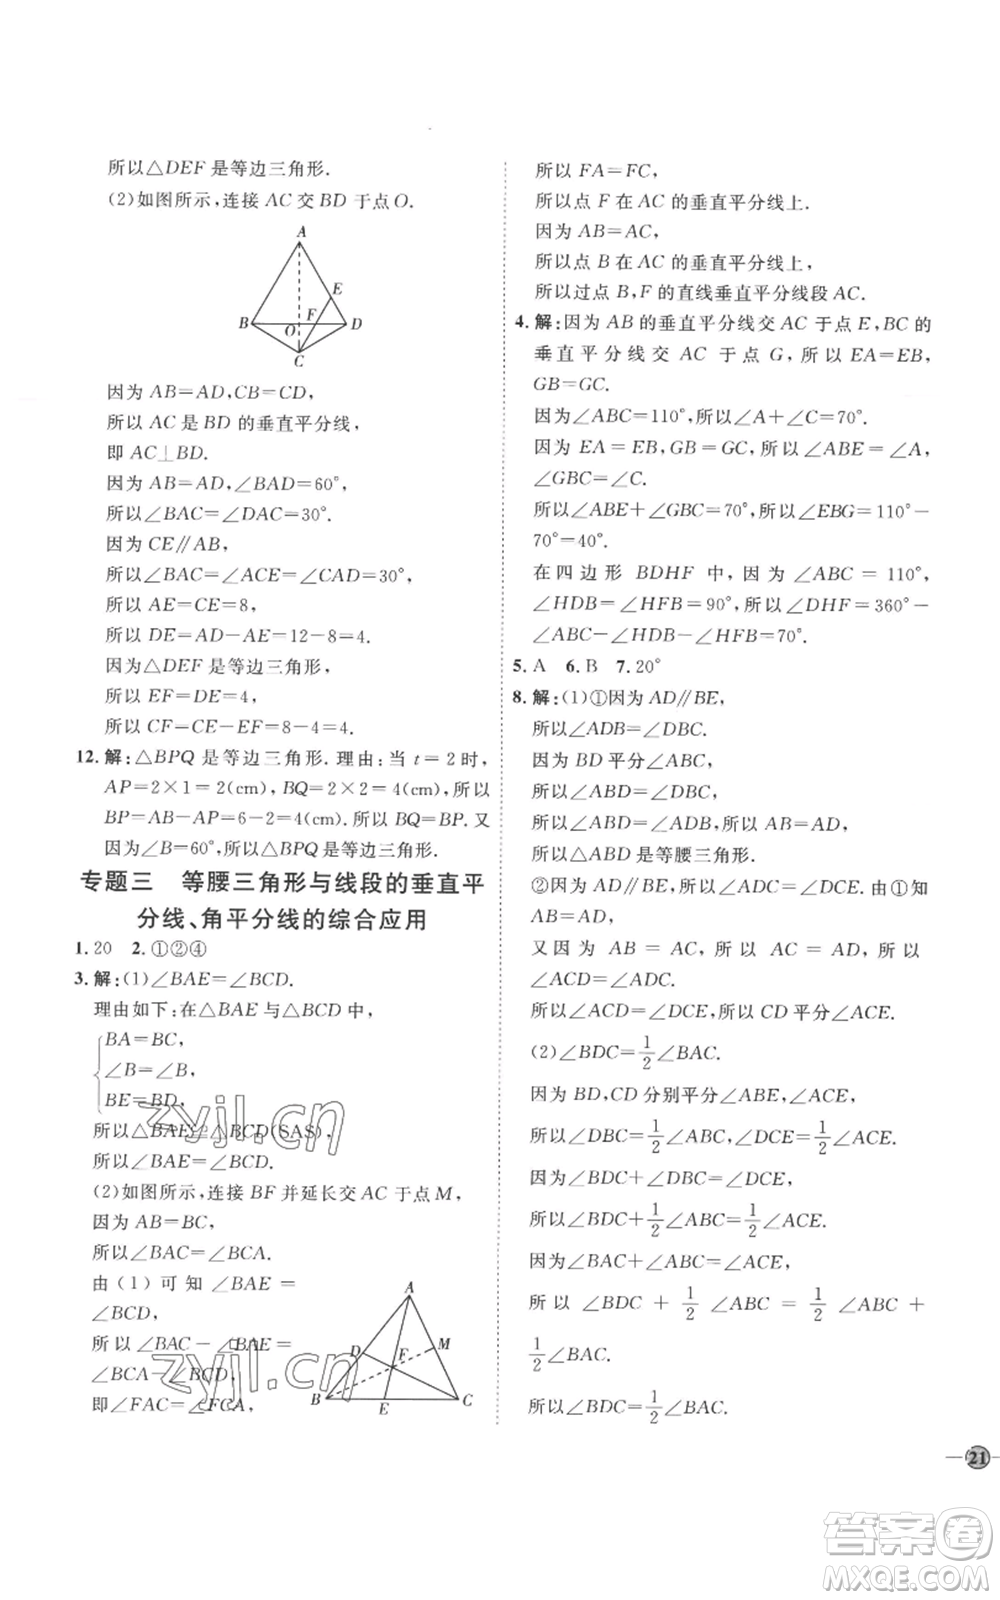 所以△DEF 是等边三角形.
(2)如图所示,连接 AC 交 BD 于点 O.
A
E
F
B
O
D
C
因为 AB=AD,CB=CD,
所以 AC 是 BD 的垂直平分线,
即 AC⊥BD.
因为 AB=AD,∠BAD=60°,
所以∠BAC=∠DAC=30°.
因为 CE∥AB,
所以∠BAC=∠ACE=∠CAD=30°,
所以 AE=CE=8,
所以 DE=AD-AE=12-8=4.
因为△DEF 是等边三角形,
所以 EF=DE=4,
所以 CF=CE-EF=8-4=4.
12.解:△BPQ 是等边三角形. 理由:当 t=2 时,
AP=2×1=2(cm),BQ=2×2=4(cm),所以
BP=AB-AP=6-2=4(cm). 所以 BQ=BP. 又
因为∠B=60°,所以△BPQ 是等边三角形.
专题三 等腰三角形与线段的垂直平
分线、角平分线的综合应用
1. 20 2. ①②④
3.解:(1)∠BAE=∠BCD.
理由如下:在△BAE 与△BCD 中,
BA=BC,
∠B=∠B,
BE=BD,
所以△BAE≌△BCD(SAS),
所以∠BAE=∠BCD.
(2)如图所示,连接 BF 并延长交 AC 于点 M,
因为 AB=BC,
所以∠BAC=∠BCA.
由(1)可知∠BAE=
∠BCD,
所以∠BAC-∠BAE=
∠BCA-∠BCD,
即∠FAC=∠FCA,
A
D
F
M
B
E
C
所以 FA=FC,
所以点 F 在 AC 的垂直平分线上.
因为 AB=AC,
所以点 B 在 AC 的垂直平分线上,
所以过点 B,F 的直线垂直平分线段 AC.
4.解:因为 AB 的垂直平分线交 AC 于点 E,BC 的
垂直平分线交 AC 于点 G,所以 EA=EB,
GB=GC.
因为∠ABC=110°,所以∠A+∠C=70°.
因为 EA=EB,GB=GC,所以∠ABE=∠A,
∠GBC=∠C.
所以∠ABE+∠GBC=70°,所以∠EBG=110°-
70°=40°.
在四边形 BDHF 中,因为∠ABC=110°,
∠HDB=∠HFB=90°,所以∠DHF=360°-
∠ABC-∠HDB-∠HFB=70°.
5. A 6. B 7. 20°
8.解:(1)①因为 AD∥BE,
所以∠ADB=∠DBC.
因为 BD 平分∠ABC,
所以∠ABD=∠DBC,
所以∠ABD=∠ADB,所以 AB=AD,
所以△ABD 是等腰三角形.
②因为∠ABD=∠ADB(已证),由①知
AB=AD,
又因为 AB=AC,所以 AC=AD,所以
∠ACD=∠ADC.
所以∠ACD=∠DCE,所以 CD 平分∠ACE.
(2)∠BDC=1/2∠BAC.
因为 BD,CD 分别平分∠ABE,∠ACE,
所以∠DBC=1/2∠ABC,∠DCE=1/2∠ACE.
因为∠BDC+∠DBC=∠DCE,
所以∠BDC+1/2∠ABC=1/2∠ACE.
因为∠BAC+∠ABC=∠ACE,
所以∠BDC+1/2∠ABC=1/2∠ABC+
1/2∠BAC.
所以∠BDC=1/2∠BAC.
21
zyjl.cn
zyjl.cn
答案卷
MXQE.COM